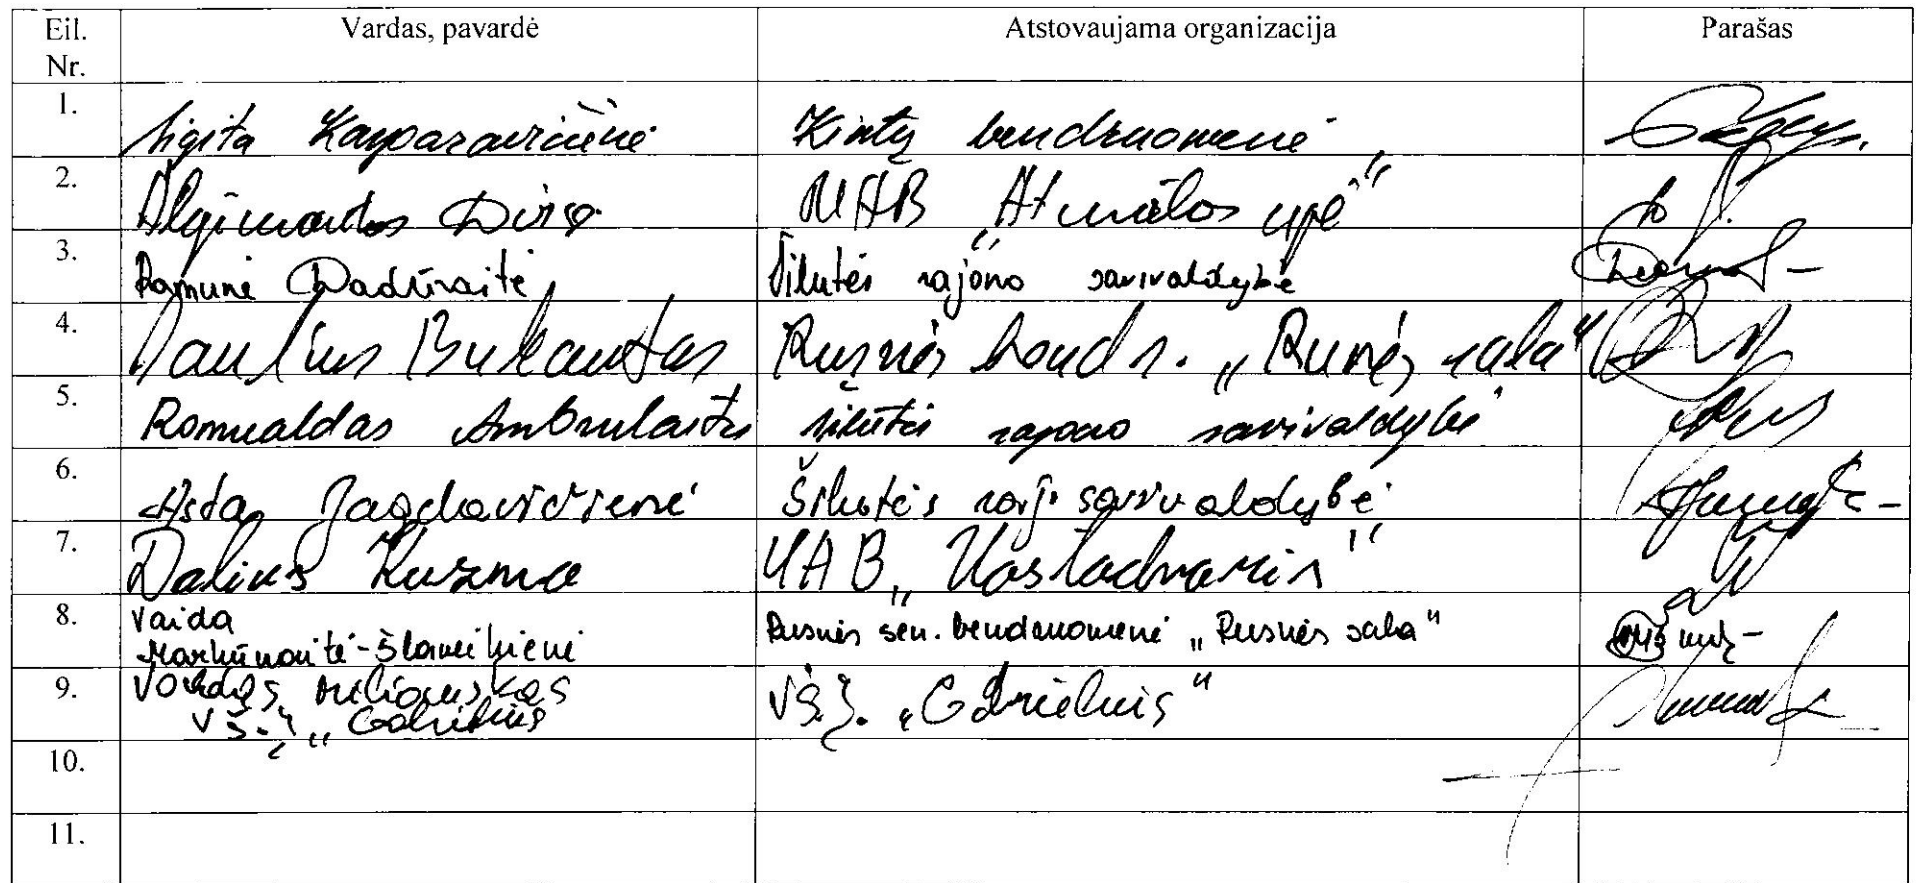 Eil. Nr. Vardas, pavardė Atstovaujama organizacija Parašas
1. Sigita Kasparavičienė Kintų bendruomenė
2. Algimantas UAB „Atmatos upė“
3. Ramunė Dadūraitė Šilutės rajono savivaldybė
4. Paulius Bukautas Rusnės bendr. „Rusnės sala“
5. Romualdas Ambrulaitis Šilutės rajono savivaldybė
6. Asta Jagdavičienė Šilutės raj. savivaldybė
7. Dalius Kuzma UAB „Uostadvaris“
8. Vaida
Rusnės sen. bendruomenė „Rusnės sala“
9. VŠĮ „
VšĮ. „
10.
11.